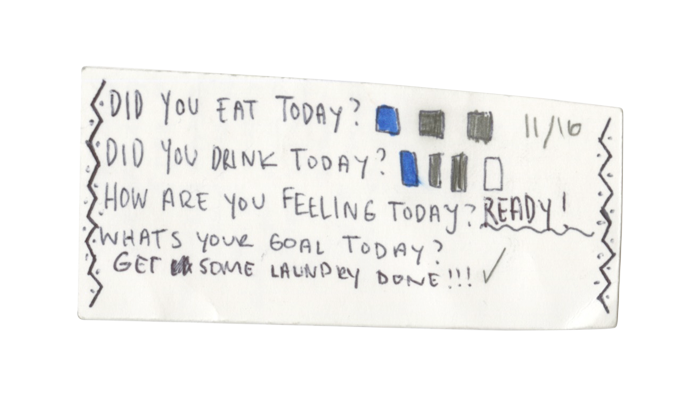 DID YOU EAT TODAY? 11/16
DID YOU DRINK TODAY?
HOW ARE YOU FEELING TODAY? READY!
WHATS YOUR GOAL TODAY?
GET SOME LAUNDRY DONE!!! ✓